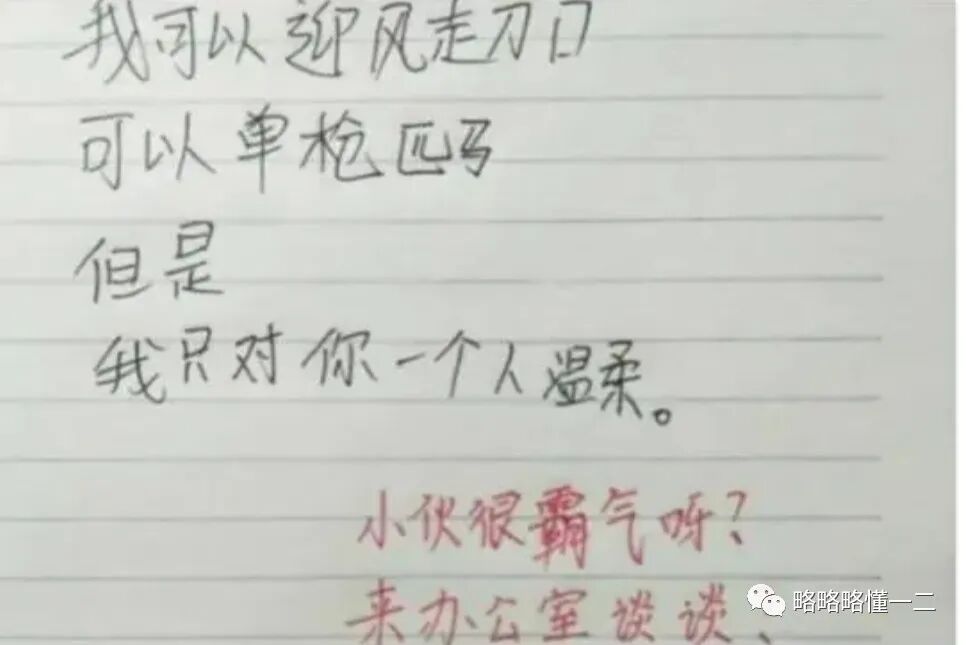 我可以迎风走刀口
可以单枪匹马
但是
我只对你一个人温柔。
小伙很霸气呀?
来办公室谈谈、
略略略懂一二